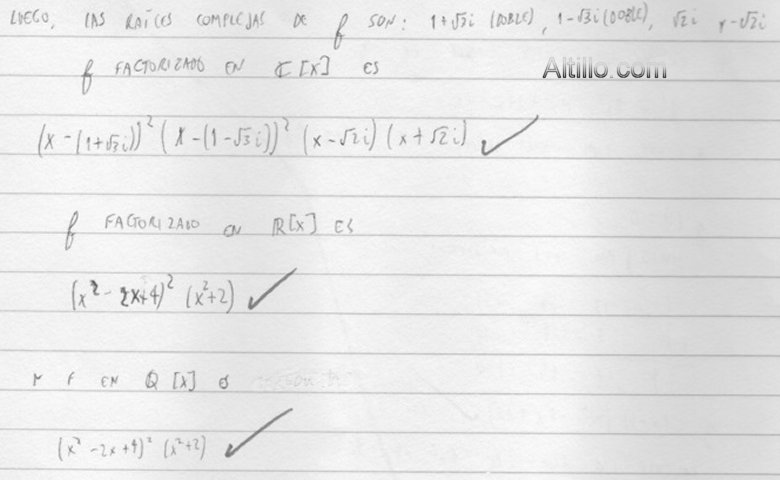 LUEGO, LAS RAÍCES COMPLEJAS DE f SON: 1+√3i (DOBLE), 1-√3i (DOBLE), √2i y -√2i
f FACTORIZADO EN ℂ[X] ES
Altillo.com
(x-(1+√3i))² (x-(1-√3i))² (x-√2i) (x+√2i)
f FACTORIZADO EN ℝ[X] ES
(x²-2x+4)² (x²+2)
Y f EN ℚ[X]
(x²-2x+4)² (x²+2)